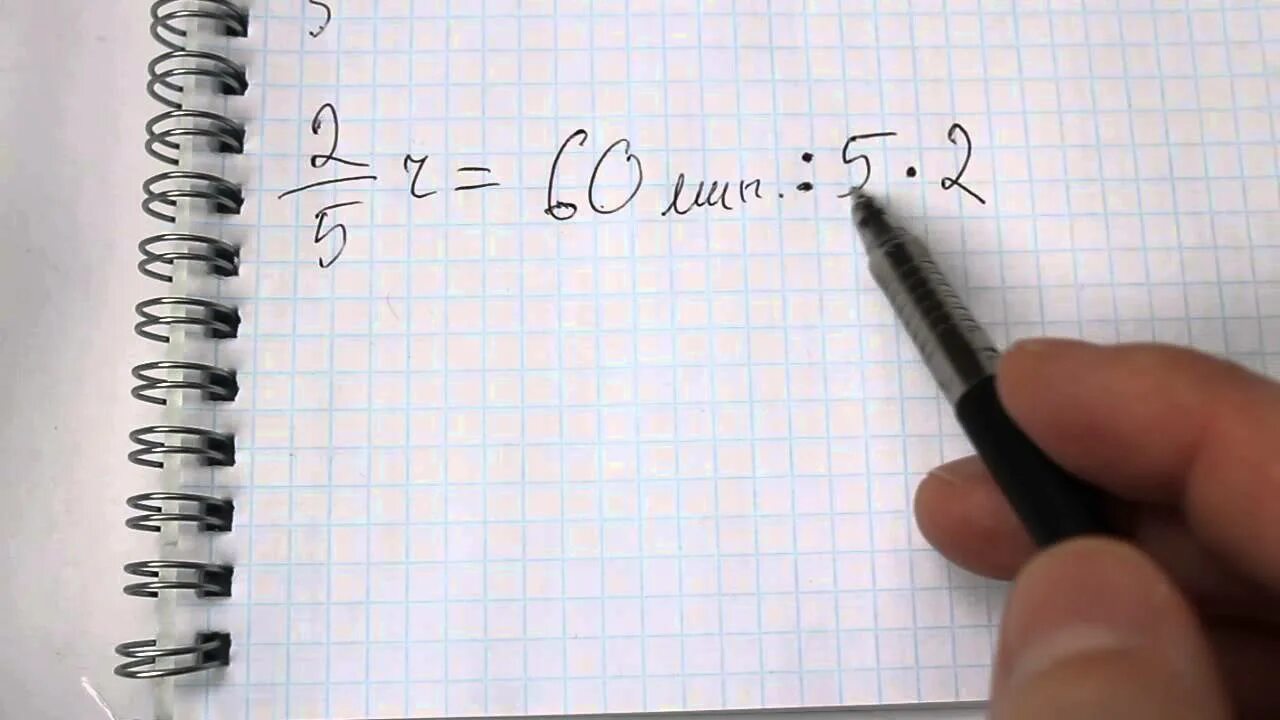 2/5 ч = 60 мин. : 5 · 2